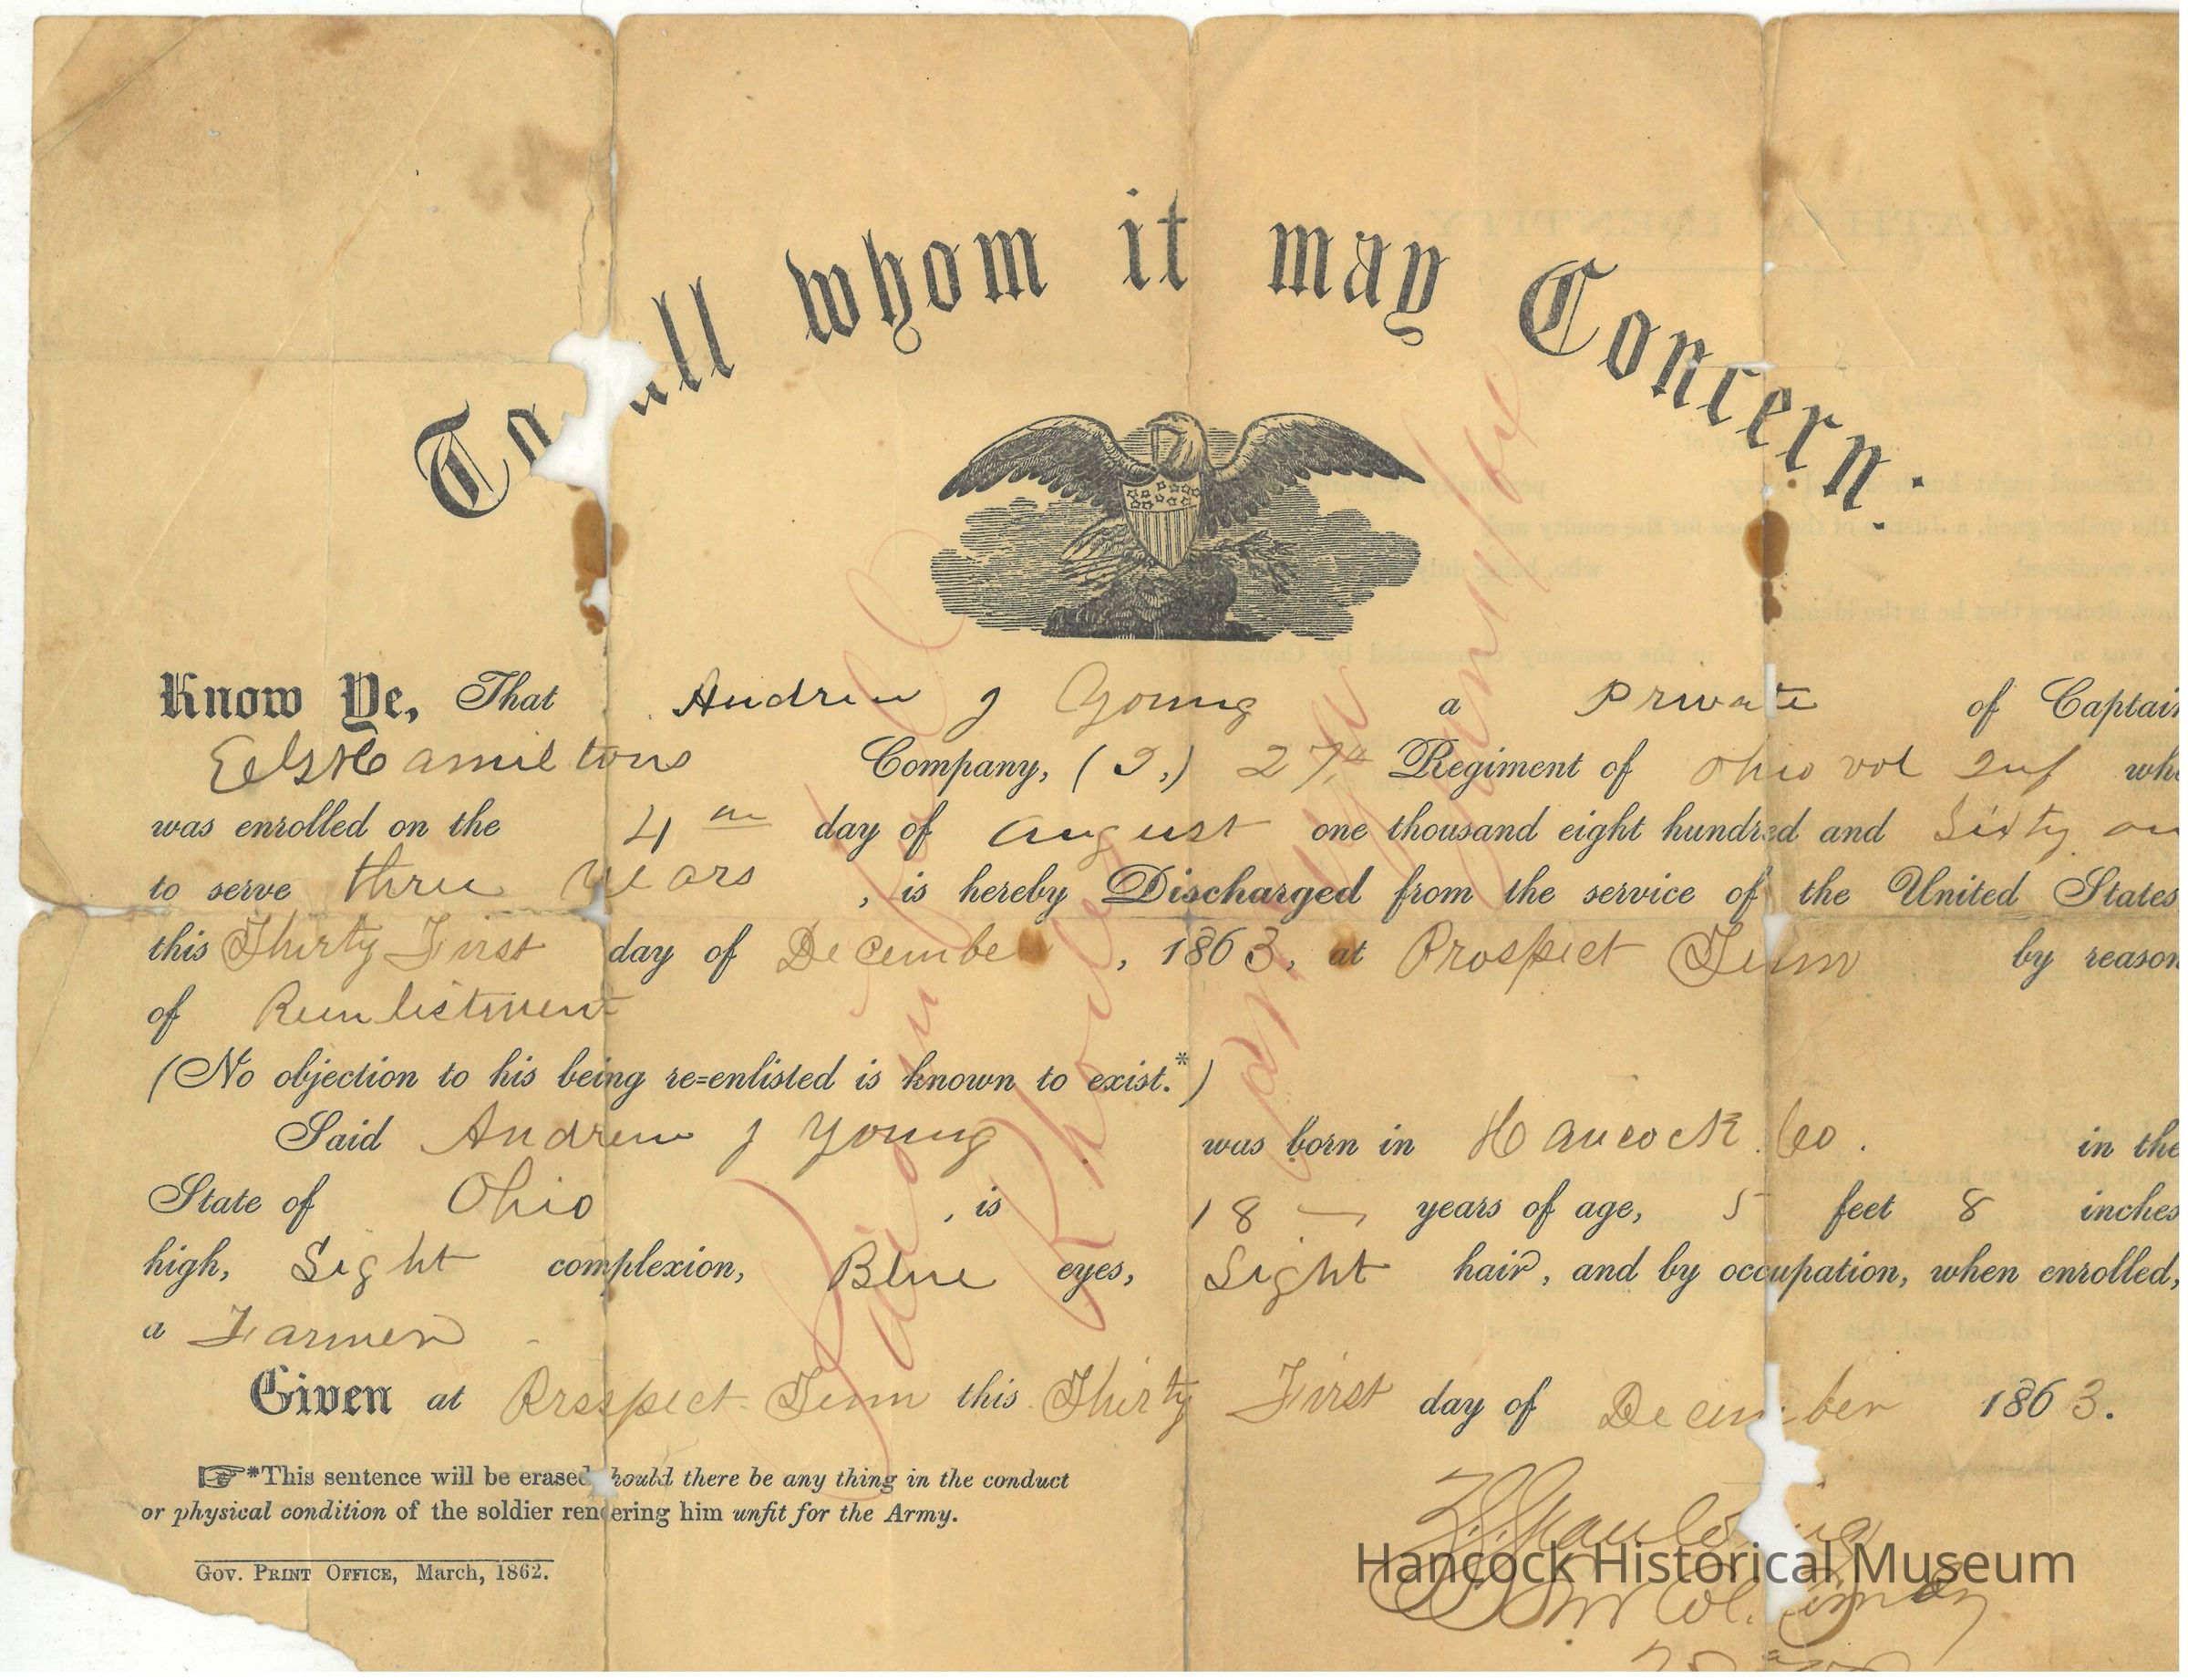 To all whom it may Concern.
Know Ye, That Andrew J Young a Private of Captain
Hamiltons Company, ( ) 27th Regiment of Ohio vol Inf who
was enrolled on the 4th day of August one thousand eight hundred and Sixty one
to serve three years , is hereby Discharged from the service of the United States
this Thirty First day of December, 1863, at Prospect Tenn by reason
of Reenlistment
(No objection to his being re=enlisted is known to exist.*)
Said Andrew J Young was born in Hancock Co. in the
State of Ohio , is 18 years of age, 5 feet 8 inches
high, Light complexion, Blue eyes, Light hair, and by occupation, when enrolled,
a Farmer
Given at Prospect Tenn this Thirty First day of December 1863.
☞*This sentence will be erased should there be any thing in the conduct
or physical condition of the soldier rendering him unfit for the Army.
Gov. Print Office, March, 1862.
Hancock Historical Museum